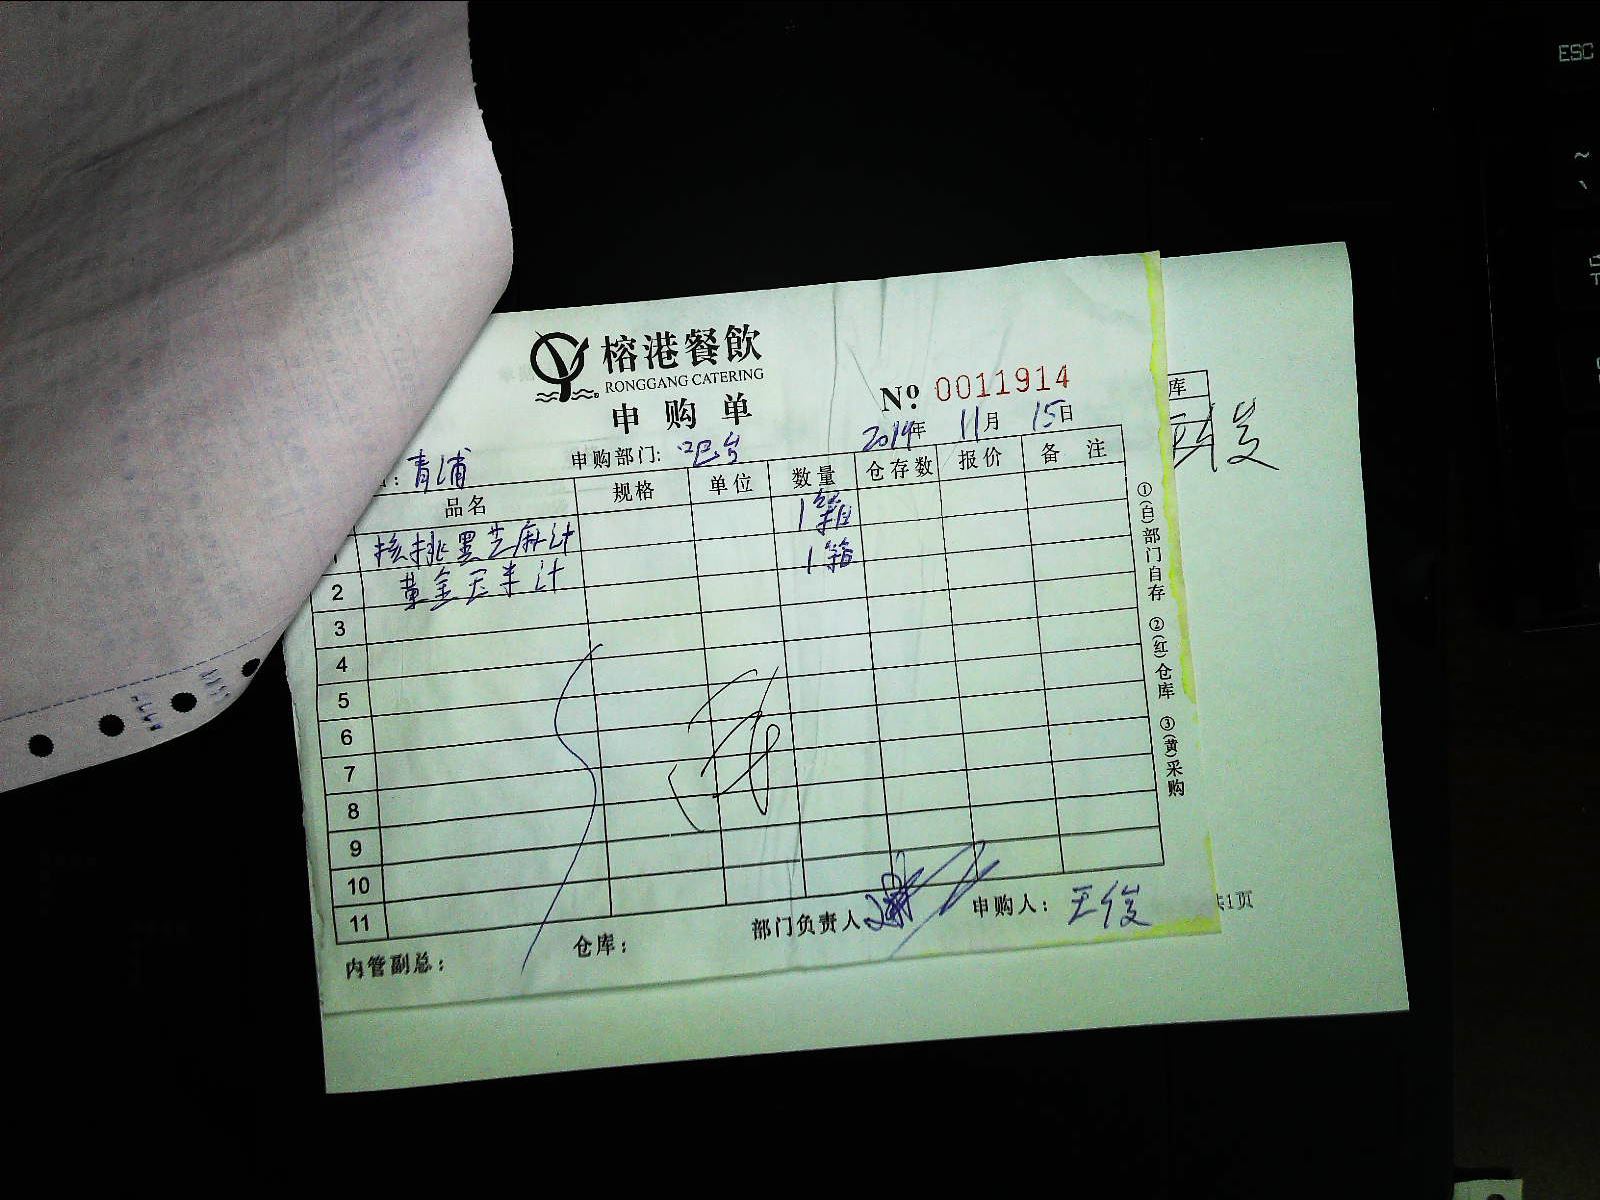 榕港餐飲
RONGGANG CATERING
申购单
№ 0011914
2014年 11月 15日
: 青浦
申购部门: 吧台
品名 规格 单位 数量 仓存数 报价 备注
核挑黑芝麻汁 1箱
2 黄金玉米汁 1箱
3
4
5
6
7
8
9
10
11
内管副总: 仓库: 部门负责人 申购人: 王俊
①(白)部门自存 ②(红)仓库 ③(黄)采购
库
王俊
共1页
ESC